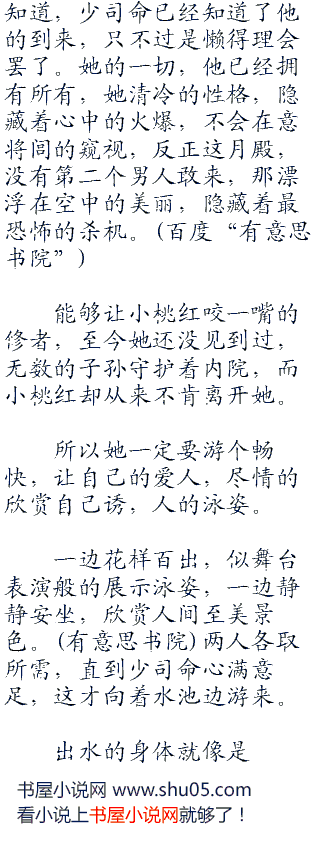 知道，少司命已经知道了他
的到来，只不过是懒得理会
罢了。她的一切，他已经拥
有所有，她清冷的性格，隐
藏着心中的火爆，不会在意
将闾的窥视，反正这月殿，
没有第二个男人敢来，那漂
浮在空中的美丽，隐藏着最
恐怖的杀机。(百度“有意思
书院”)
能够让小桃红咬一嘴的
修者，至今她还没见到过，
无数的子孙守护着内院，而
小桃红却从来不肯离开她。
所以她一定要游个畅
快，让自己的爱人，尽情的
欣赏自己诱，人的泳姿。
一边花样百出，似舞台
表演般的展示泳姿，一边静
静安坐，欣赏人间至美景
色。(有意思书院)两人各取
所需，直到少司命心满意
足，这才向着水池边游来。
出水的身体就像是
书屋小说网 www.shu05.com
看小说上书屋小说网就够了！